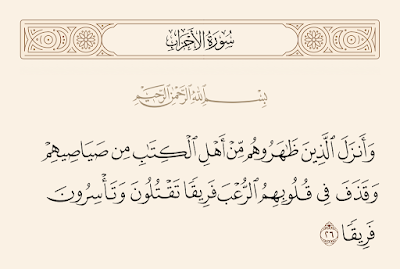 سُورَةُ الأَحۡزَابِ
بِسۡمِ ٱللَّهِ ٱلرَّحۡمَٰنِ ٱلرَّحِيمِ
وَأَنزَلَ ٱلَّذِينَ ظَٰهَرُوهُم مِّنۡ أَهۡلِ ٱلۡكِتَٰبِ مِن صَيَاصِيهِمۡ
وَقَذَفَ فِي قُلُوبِهِمُ ٱلرُّعۡبَ فَرِيقٗا تَقۡتُلُونَ وَتَأۡسِرُونَ
فَرِيقٗا ٢٦